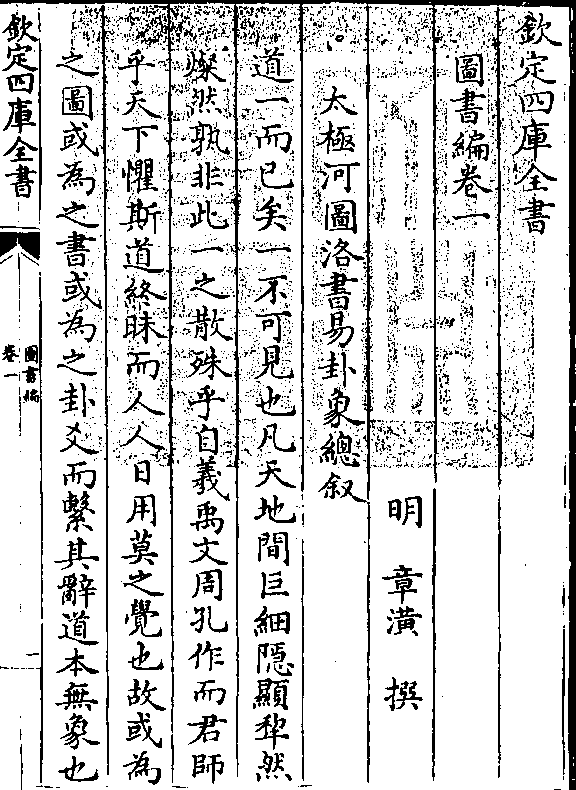 欽定四庫全書
圖書編卷一
明 章潢 撰
太極河圖洛書易卦象總叙
道一而已矣一不可見也凡天地間巨細隱顯犂然
燦然孰非此一之散殊乎自羲禹文周孔作而君師
乎天下懼斯道終昧而人人日用莫之覺也故或為
之圖或為之書或為之卦爻而繫其辭道本無象也
欽定四庫全書
圖書編
卷一
一